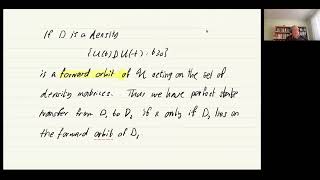 If D is a density
{U(t) D U(-t) : t≥0}
is a forward orbit of U acting on the set of
density matrices. Thus we have perfect state
transfer from D₁ to D₂ if & only if D₂ lies on
the forward orbit of D₁